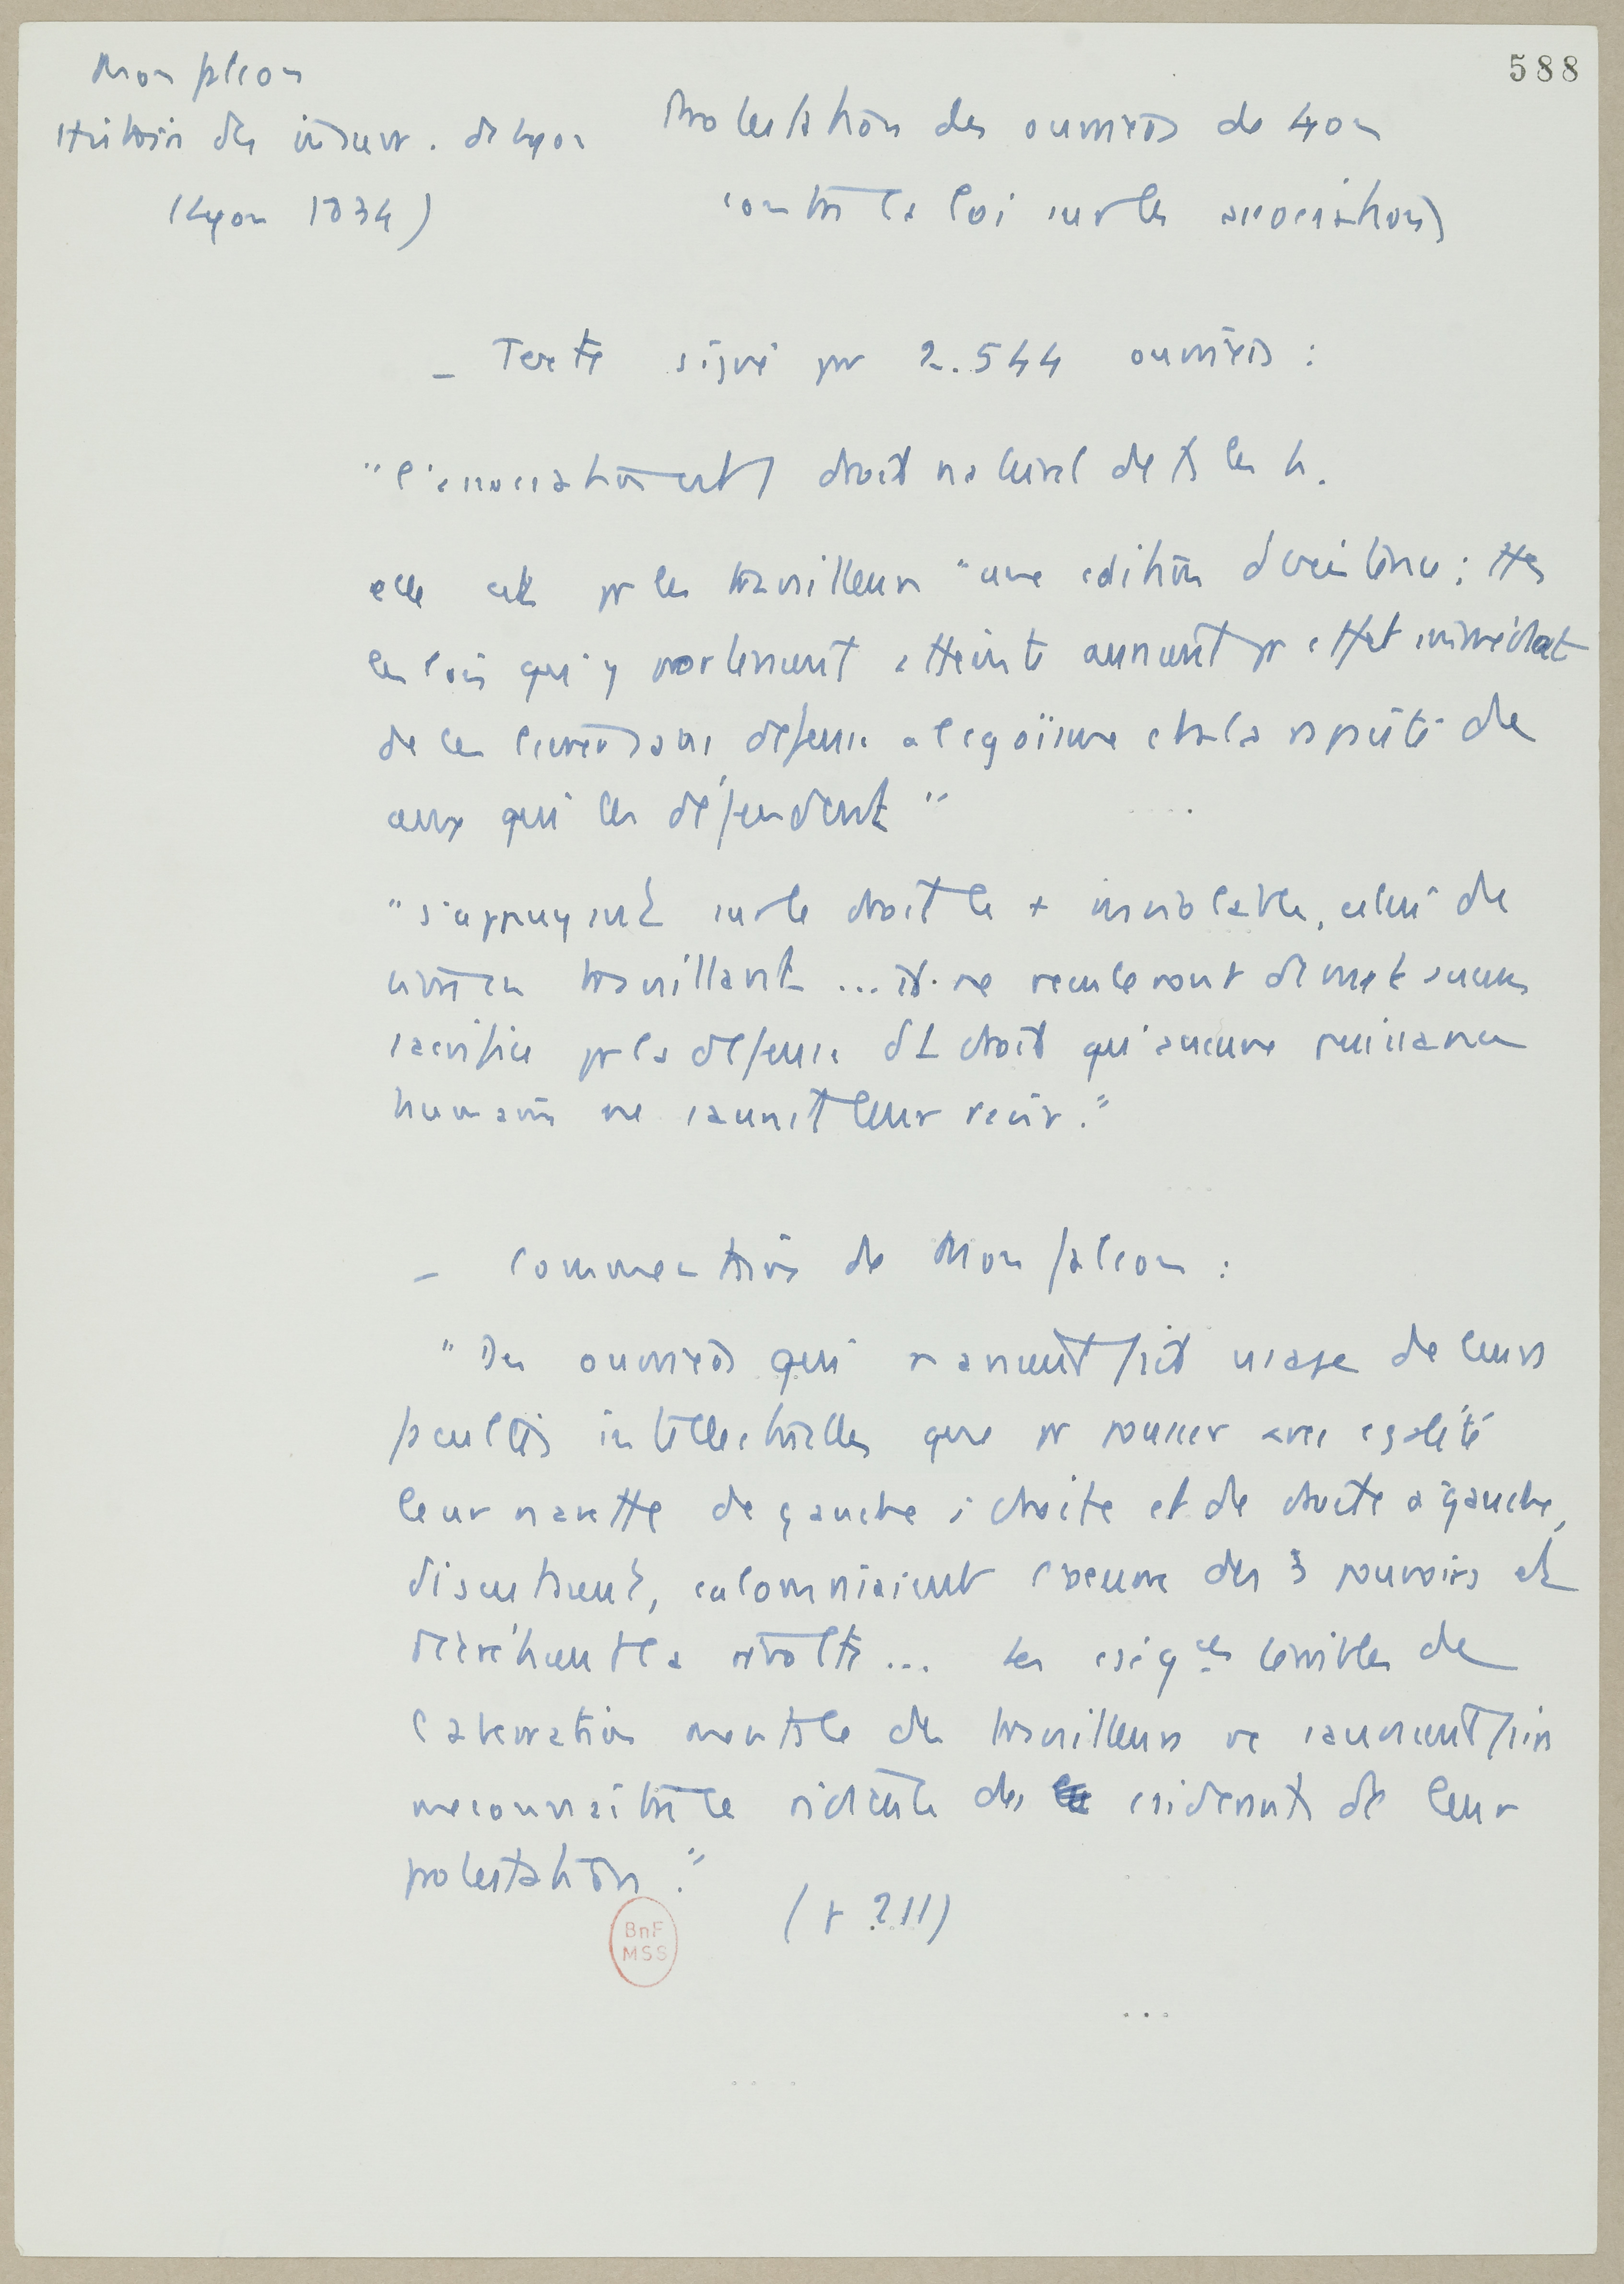 588
Monfalcon
Histoire des insurr. de Lyon
(Lyon 1834)
Protestation des ouvriers de Lyon
contre la loi sur les associations
_ Texte signé pr 2.544 ouvriers :
"l'association est / droit naturel de ts les h.
elle est pr les travailleurs "une cdition d'existence ; ttes
les lois qui y porteraient atteinte auraient pr effet immédiat
de les livrer sans défense à l'égoïsme et à la rapacité de
ceux qui les défendent "
"s'appuyant sur le droit le + inviolable, celui de
vivre en travaillant ... ils ne reculeront devant aucun
sacrifice pr la défense d'1 droit qu'aucune puissance
humaine ne saurait leur ravir."
_ Commentaires de Monfalcon :
"Des ouvriers qui n'avaient fait usage de leurs
facultés intellectuelles que pr pousser avec égalité
leur navette de gauche à droite et de droite à gauche,
discutaient, calomniaient l'oeuvre des 3 pouvoirs et
décrétaient la révolte ... Les exigces terribles de
l'aberration mentale des travailleurs ne sauraient faire
méconnaître le ridicule des considérants de leur
protestation."
(p 211)
BnF
MSS